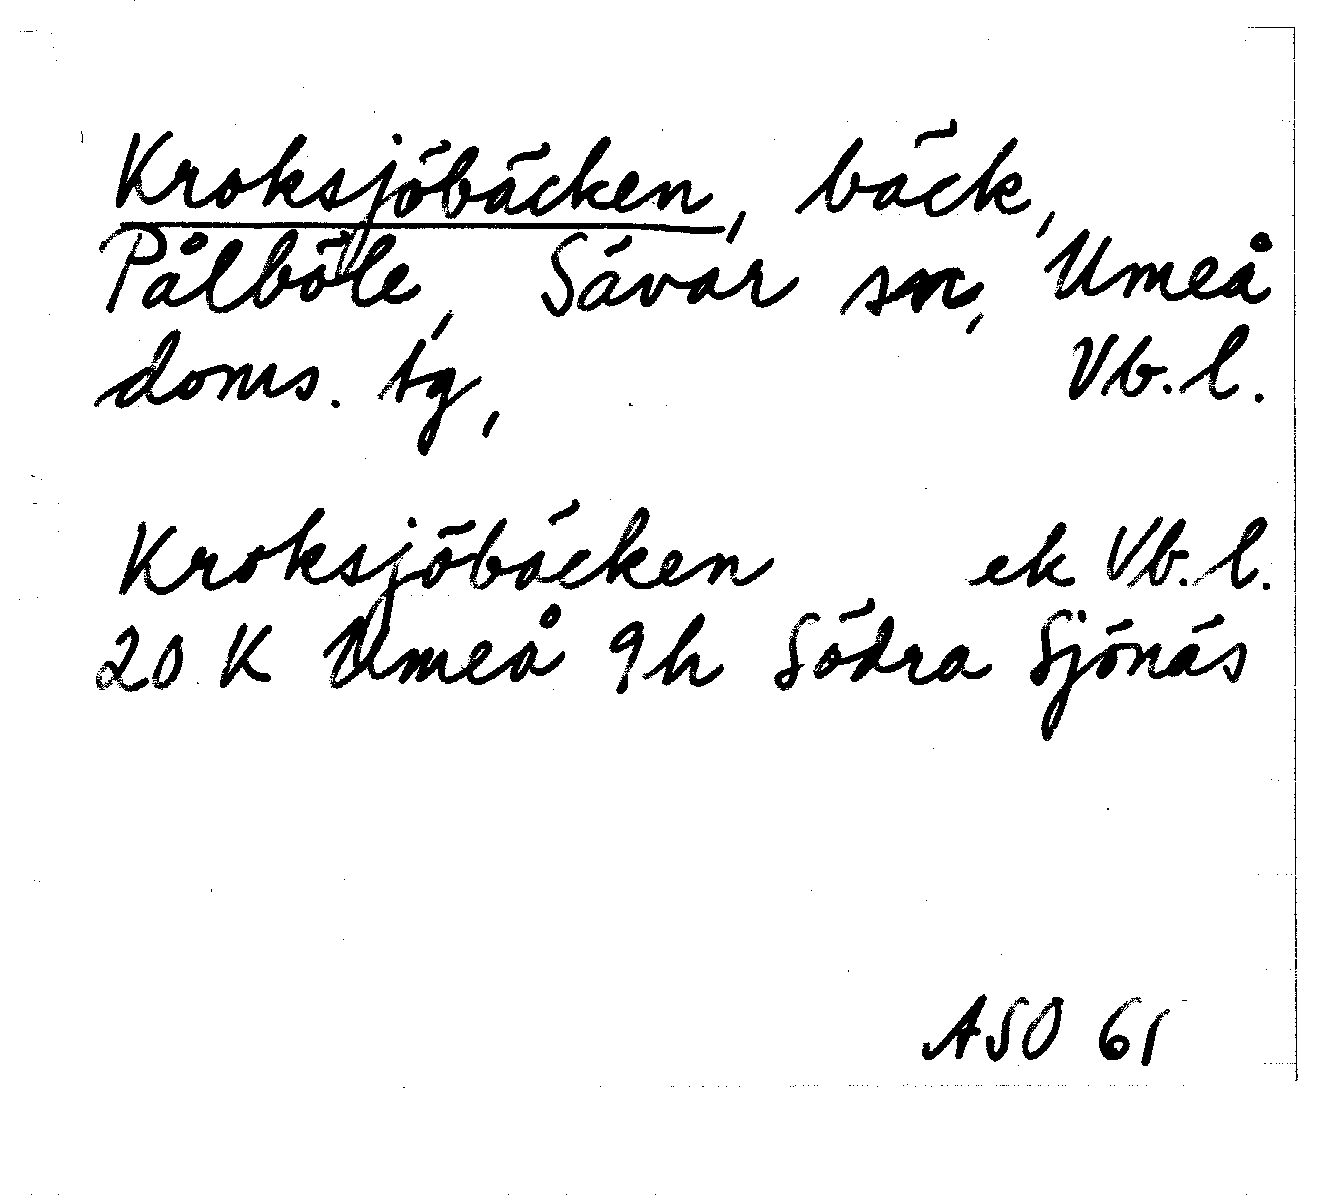 Kroksjöbäcken, bäck,
Pålböle, Sävar sn, Umeå
doms. tg, Vb. l.
Kroksjöbäcken ek Vb. l.
20 K Umeå 9h Södra Sjönäs
ASO 61